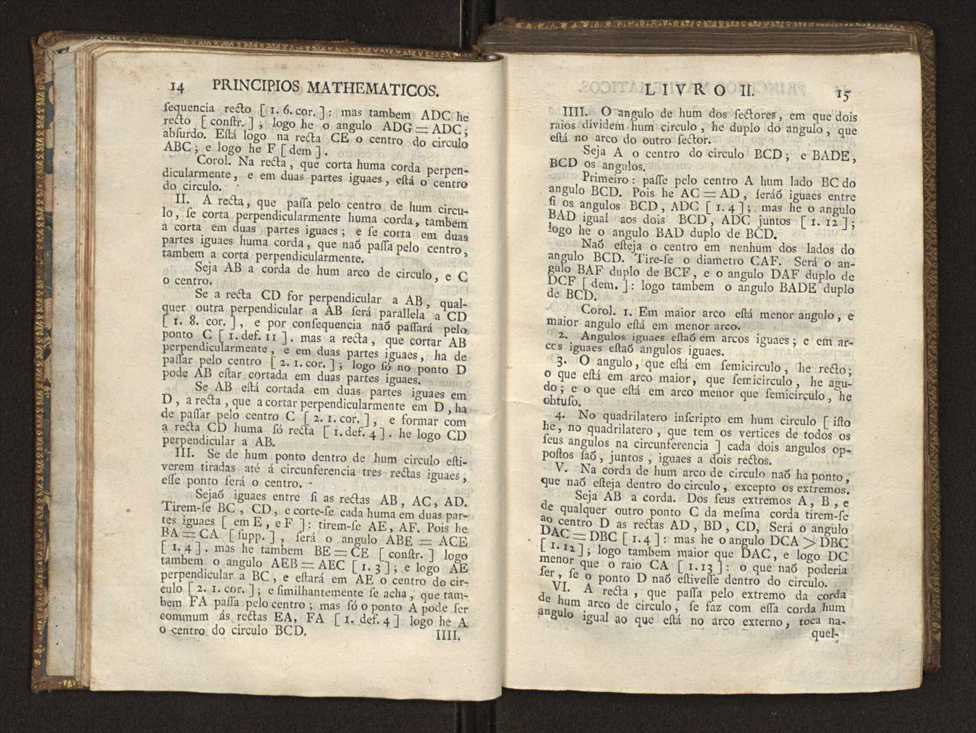 14 PRINCIPIOS MATHEMATICOS.
ſequencia recto [ 1. 6. cor. ] : mas tambem ADC he
recto [ conſtr. ] , logo he o angulo ADG = ADC ;
abſurdo. Eſtá logo na recta CE o centro do circulo
ABC ; e logo he F [ dem ] .
Corol. Na recta, que corta huma corda perpen-
dicularmente, e em duas partes iguaes, eſtá o centro
do circulo.
II. A recta, que paſſa pelo centro de hum circu-
lo, ſe corta perpendicularmente huma corda, tambem
a corta em duas partes iguaes ; e ſe corta em duas
partes iguaes huma corda, que naõ paſſa pelo centro,
tambem a corta perpendicularmente.
Seja AB a corda de hum arco de circulo, e C
o centro.
Se a recta CD for perpendicular a AB, qual-
quer outra perpendicular a AB ſerá parallela a CD
[ 1. 8. cor. ] , e por conſequencia naõ paſſará pelo
ponto C [ 1. def. 11 ] . mas a recta, que cortar AB
perpendicularmente, e em duas partes iguaes, ha de
paſſar pelo centro [ 2. 1. cor. ] ; logo ſó no ponto D
pode AB eſtar cortada em duas partes iguaes.
Se AB eſtá cortada em duas partes iguaes em
D, a recta, que a cortar perpendicularmente em D, ha
de paſſar pelo centro C [ 2. 1. cor. ] , e formar com
a recta CD huma ſó recta [ 1. def. 4 ] . he logo CD
perpendicular a AB.
III. Se de hum ponto dentro de hum circulo eſti-
verem tiradas até á circunferencia tres rectas iguaes,
eſſe ponto ſerá o centro.
Sejaõ iguaes entre ſi as rectas AB, AC, AD.
Tirem-ſe BC, CD, e corte-ſe cada huma em duas par-
tes iguaes [ em E, e F ] : tirem-ſe AE, AF. Pois he
BA = CA [ ſupp. ] , ſerá o angulo ABE = ACE
[ 1. 4 ] . mas he tambem BE = CE [ conſtr. ] logo
tambem o angulo AEB = AEC [ 1. 3 ] ; e logo AE
perpendicular a BC, e eſtará em AE o centro do cir-
culo [ 2. 1. cor. ] ; e ſimilhantemente ſe acha, que tam-
bem FA paſſa pelo centro ; mas ſó o ponto A pode ſer
commum ás rectas EA, FA [ 1. def. 4 ] logo he A
o centro do circulo BCD.
IIII.
LIVRO II. 15
IIII. O angulo de hum dos ſectores, em que dois
raios dividem hum circulo, he duplo do angulo, que
eſtá no arco do outro ſector.
Seja A o centro do circulo BCD ; e BADE,
BCD os angulos.
Primeiro : paſſe pelo centro A hum lado BC do
angulo BCD. Pois he AC = AD, ſeráõ iguaes entre
ſi os angulos BCD, ADC [ 1. 4 ] ; mas he o angulo
BAD igual aos dois BCD, ADC juntos [ 1. 12 ] ;
logo he o angulo BAD duplo de BCD.
Naõ eſteja o centro em nenhum dos lados do
angulo BCD. Tire-ſe o diametro CAF. Será o an-
gulo BAF duplo de BCF, e o angulo DAF duplo de
DCF [ dem. ] : logo tambem o angulo BADE duplo
de BCD.
Corol. 1. Em maior arco eſtá menor angulo, e
maior angulo eſtá em menor arco.
2. Angulos iguaes eſtaõ em arcos iguaes ; e em ar-
cos iguaes eſtaõ angulos iguaes.
3. O angulo, que eſtá em ſemicirculo, he recto ;
o que eſtá em arco maior, que ſemicirculo, he agu-
do ; e o que eſtá em arco menor que ſemicirculo, he
obtuſo.
4. No quadrilatero inſcripto em hum circulo [ iſto
he, no quadrilatero, que tem os vertices de todos os
ſeus angulos na circunferencia ] cada dois angulos op-
poſtos ſaõ, juntos, iguaes a dois rectos.
V. Na corda de hum arco de circulo naõ ha ponto,
que naõ eſteja dentro do circulo, excepto os extremos.
Seja AB a corda. Dos ſeus extremos A, B, e
de qualquer outro ponto C da meſma corda tirem-ſe
ao centro D as rectas AD, BD, CD, Será o angulo
DAC = DBC [ 1. 4 ] : mas he o angulo DCA > DBC
[ 1. 12 ] ; logo tambem maior que DAC, e logo DC
menor que o raio CA [ 1. 13 ] : o que naõ poderia
ſer, ſe o ponto D naõ eſtiveſſe dentro do circulo.
VI. A recta, que paſſa pelo extremo da corda
de hum arco de circulo, ſe faz com eſſa corda hum
angulo igual ao que eſtá no arco externo, toca na-
quel-